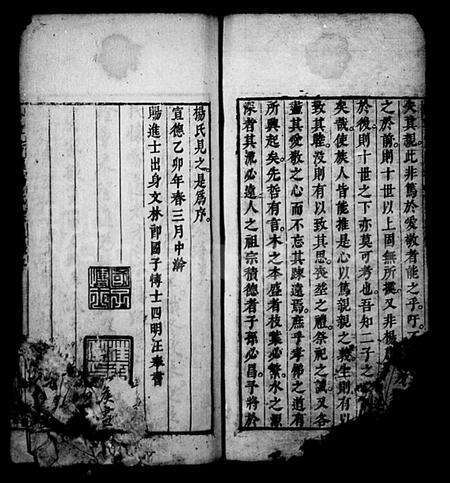 矣其親此非篤於愛敬者能之乎吁
之於前則十世以上固無所據又非楊
於後則十世之下亦莫可考也吾知二子之
矣哉使族人皆能推是心以篤親親之義生則有以
致其睦沒則有以致其思喪塟之禮祭祀之誠又各
盡其愛敬之心而不忘其踈遠焉庶乎孝弟之道有
所興起矣先哲有言木之本盛者枝葉必繁水之源
深者其流必遠人之祖宗積德者子孫必昌乎將於
楊氏見之是爲序
宣德乙卯年春三月中澣
賜進士出身文林郎國子博士四明汪奉書